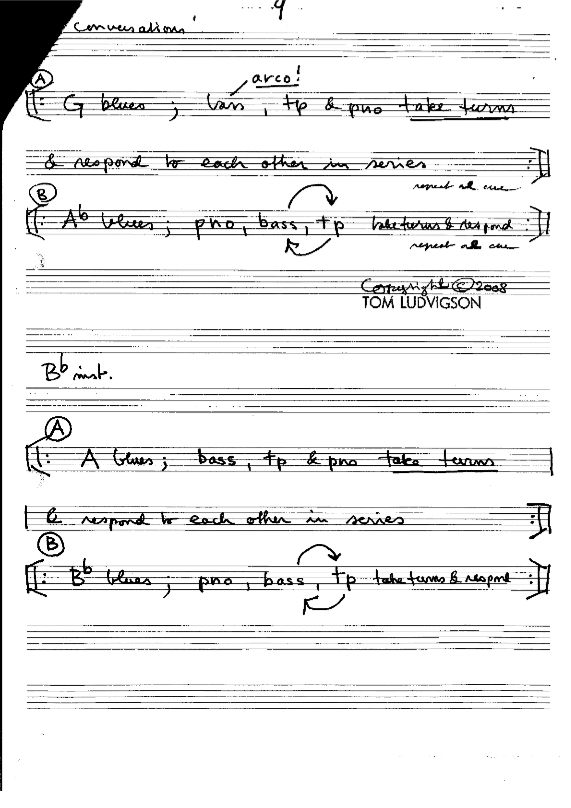 9
conversations'
arco!
A
G blues; bass, tp & pno take turns
& respond to each other in series
repeat ad cue
B
Ab blues; pno, bass, tp take turns & respond
repeat ad cue
Copyright © 2008
TOM LUDVIGSON
Bb inst.
A
A blues; bass, tp & pno take turns
& respond to each other in series
B
Bb blues; pno, bass, tp take turns & respond